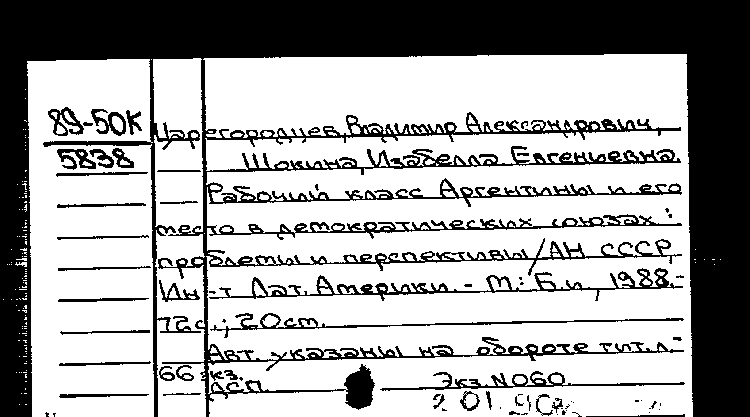 89-50К
5838
Царегородцев, Владимир Александрович,
Шокина, Изабелла Евгеньевна.
Рабочий класс Аргентины и его
место в демократических союзах:
проблемы и перспективы/АН СССР,
Ин-т Лат. Америки. - М.: Б.и., 1988.-
72с.; 20см.
Авт. указаны на обороте тит. л.-
66 экз.
ДСП.
Экз. N060.
2 01